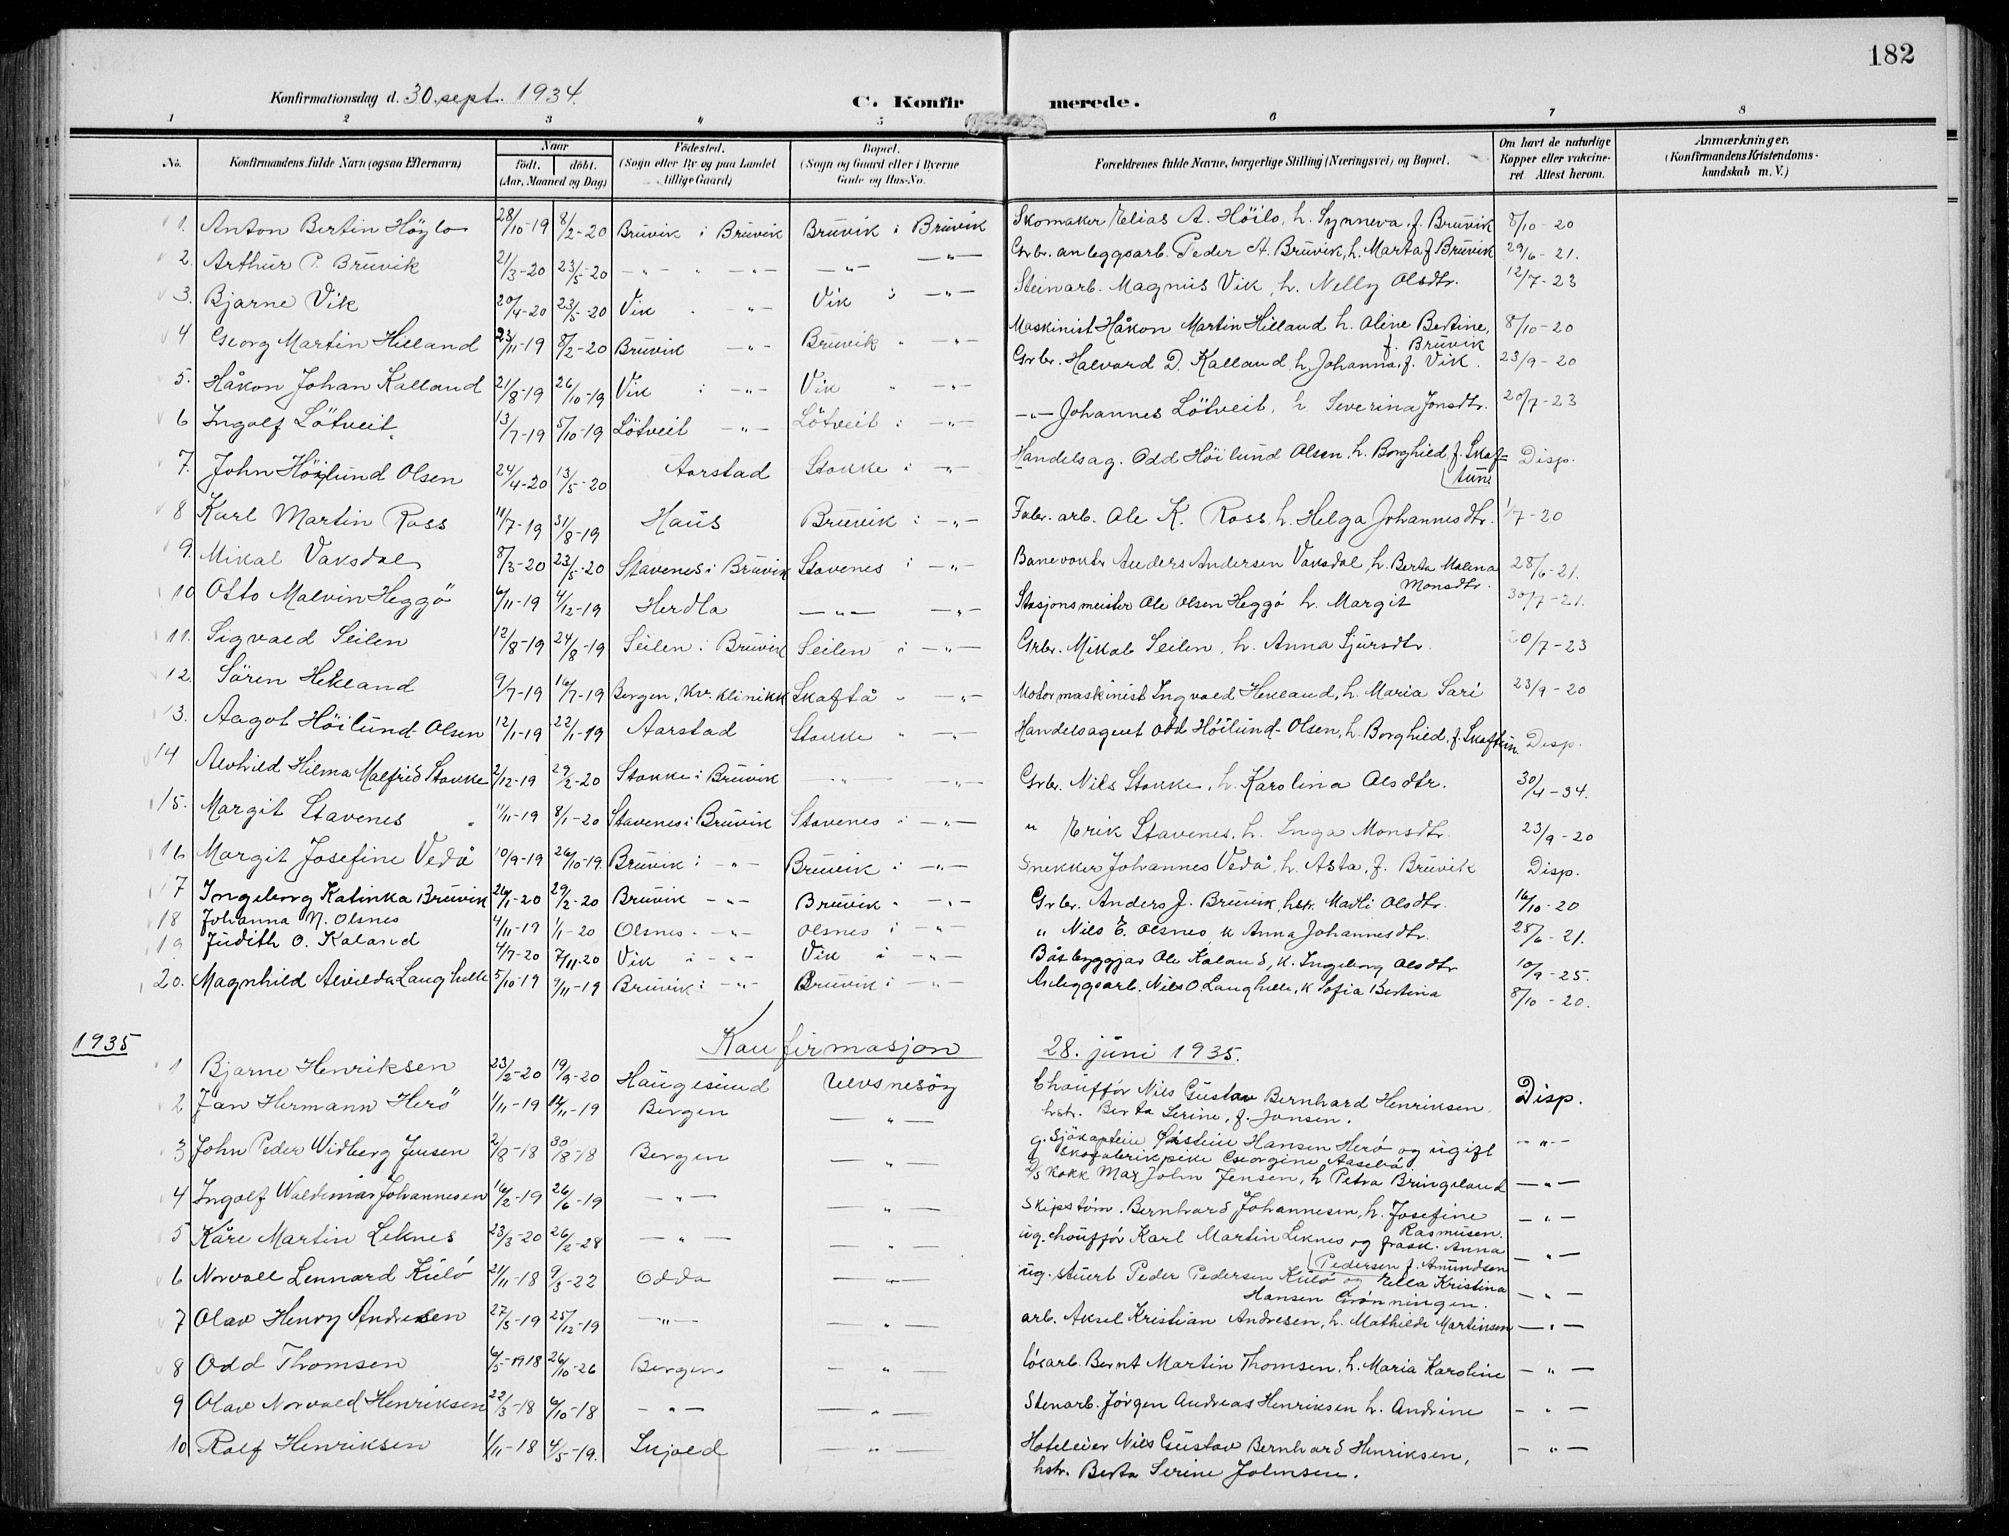 182
Konfirmationsdag d. 30. sept. 1934. C. Konfirmerede.
1 2 3 " 5 6 7 8
No. Konfirmandens fulde Navn (ogsaa Efternavn) Naar født. døbt. (Aar, Maaned og Dag) Fødested. (Sogn eller By og paa Landet tillige Gaard) Bopæl. (Sogn og Gaard eller i Byerne Gade og Hus-No. Forældrenes fulde Navne, borgerlige Stilling (Næringsvei) og Bopæl. Om havt de naturlige Kopper eller vakcineret Attest herom. Anmærkninger. (Konfirmandens Kristendomskundskab m. V.)
1. Anton Bertin Höylo 28/10-19 8/2-20 Bruvik i Bruvik Bruvik i Bruvik Skomaker Elias A. Höilo, h. Synneva, f. Bruvik 8/10-20
2. Arthur P. Bruvik 21/3-20 23/5-20 -"- " -"- -"- -"- Grbr. anleggsarb. Peder A. Bruvik, h. Marta f. Bruvik 29/6-21.
3. Bjarne Vik 20/4-20 23/5-20 Vik . -"- Vik i -"- Steinarb. Magnus Vik, h. Nelly Olsdtr. 12/7-23
4 Georg Martin Hilland 23/11-19 8/2-20 Bruvik -"- Bruvik " -"- Maskinist Håkon Martin Hilland h. Oline Bertine, f. Bruvik 8/10-20
5. Håkon Johan Kalland 21/8-19 26/10-19 Vik i -"- Vik " -"- Grbr. Halvard D. Kalland, h. Johanna, f. Vik. 23/9-20
6 Ingolf Lötveit 13/7-19 5/10-19 Lötveit -"- Lötveit i -"- -"- Johannes Lötveit, h. Severina Jonsdtr. 20/7-23
7. John Höilund Olsen 24/4-20 13/5-20 Aarstad Stokke i -"- Handelsag. Odd Höilund Olsen, h. Borghild, f. Skaftun Disp.
8 Karl Martin Ross 11/7-19 31/8-19 Haus Bruvik i -"- Fabr. arb. Ole K. Ross, h. Helga Johannesdtr. 1/7-20
9. Mikal Vaksdal 8/3-20 23/5-20 Stavenes i Bruvik Stavenes i -"- Banevoktr Anders Andersen Vaksdal, h. Berta Malena Monsdtr. 28/6-21.
10 Otto Malvin Heggö 6/11-19 4/12-19 Herdla -"- -"- Stasjonsmeister Ole Olsen Heggö h. Margit 30/7-21.
11. Sigvald Seilen 12/8-19 24/8-19 Seilen i Bruvik Seilen i -"- Grbr. Mikal Seilen, h. Anna Sjursdtr. 20/7-23
12. Sören Hekland 9/7-19 16/7-19 Bergen, Kv. klinikk Skaftå " -"- Motormaskinist Ingvald Hekland, h. Maria Sari 23/9-20
13. Aagot Höilund-Olsen 12/1-19 22/1-19 Aarstad Stokke " -"- Handelsagent Odd Höilund-Olsen, h. Borghild, f. Skaftun. Disp.
14 Alvhild Hilma Malfrid Stokke 2/12-19 29/2-20 Stokke i Bruvik -"- -"- Grbr. Nils Stokke, h. Karolina Olsdtr. 30/4-34.
15. Margit Stavenes 11/11-19 8/1-20 Stavenes i Bruvik Stavenes i -"- " Erik Stavenes, h. Inga Monsdtr. 23/9-20
16 Margit Josefine Vedå 10/9-19 26/10-19 Bruvik i -"- Bruvik i -"- Snekker Johannes Vedå, h. Asta, f. Bruvik Disp.
17 Ingeborg Katinka Bruvik 26/1-20 29/2-20 Bruvik -"- Bruvik " -"- Grbr. Anders J. Bruvik, hstr. Madli Olsdtr. 16/10-20
18 Johanna N. Olsnes 4/11-19 1/1-20 Olsnes -"- Olsnes i -"- " Nils E. Olsnes, k Anna Johannesdtr. 28/6-21.
19 Judith O. Kaland 4/7-20 7/11-20 Vik i -"- Vik i -"- Båtbyggjar Ole Kaland, k. Ingeborg Olsdtr 10/9-25.
20. Magnhild Alvilda Langhelle 5/10-19 9/11-19 Bruvik i -"- Bruvik i -"- Anleggsarb. Nils O. Langhelle, k Sofia Bertina 8/10-20.
1935 Konfirmasjon 28. juni 1935.
1 Bjarne Henriksen 23/2-20 19/9-20 Haugesund Ulvsnesöy Choufför Nils Gustav Bernhard Henriksen, hstr. Berta Serine, f. Jonsen. Disp.
2 Jan Hermann Herö 1/11-19 14/11-19 Bergen -"- g. Sjökaptein Hansen Herö og ugift Georgine Aasebö -"-
3 John Peder Widberg Jensen 2/8-18 30/8-18 Bergen -"- d/s kokk Max John Jensen, h Petra Bringeland -"-
4 Ingolf Waldemar Johannesen 16/2-19 26/6-19 -"- -"- Skipstöm. Bernhard Johannesen, h. Josefine Rasmusen. -"-
5 Kåre Martin Leknes 23/3-20 26/2-28 -"- -"- ug. chouffør Karl Martin Leknes og frask. Anna Pedersen f. Amundsen -"-
6 Norvall Lennard Kulö 21/11-18 9/3-22 Odda -"- ug. stuert Peder Pedersen Kulö og Ella Kristina Hansen Grönningen. -"-
7 Olav Henry Andresen 27/5-19 25/12-19 -"- -"- arb. Aksel Kristian Andresen, h. Mathilde Martinsen -"-
8 Odd Thomsen 6/5-1918 26/10-26 Bergen " lösarb. Bernt Martin Thomsen, h. Maria Karoline -"-
9 Olav Norvald Henriksen 22/3-18 6/10-18 -"- -"- Stenarb. Jörgen Andreas Henriksen h. Andrine -"-
10 Rolf Henriksen 1/11-18 4/5-19. Skjold -"- Hoteleier Nils Gustav Bernhard Henriksen, hstr. Berta Serine Johnsen. -"-